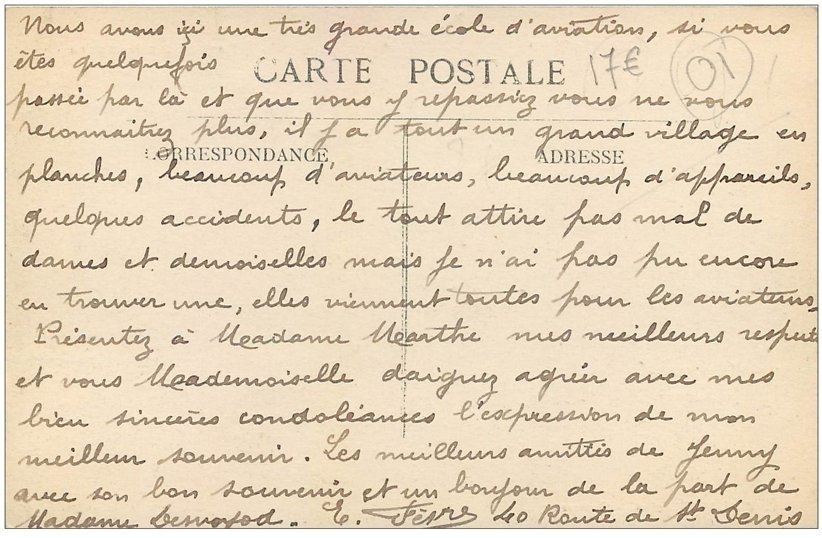 Nous avons içi une très grande école d'aviation, si vous
êtes quelquefois
CARTE POSTALE 17€ 01
passée par là et que vous y repassiez vous ne vous
reconnaitrez plus, il y a tout un grand village en
CORRESPONDANCE ADRESSE
planches, beaucoup d'aviateurs, beaucoup d'appareils,
quelques accidents, le tout attire pas mal de
dames et demoiselles mais je n'ai pas pu encore
en trouver une, elles viennent toutes pour les aviateurs.
Présentez à Madame Marthe mes meilleurs respects
et vous Mademoiselle daignez agréer avec mes
bien sincères condoléances l'expression de mon
meilleur souvenir. Les meilleurs amitiés de Jenny
avec son bon souvenir et un bonjour de la part de
Madame E. Fèvre 40 Route de St Denis